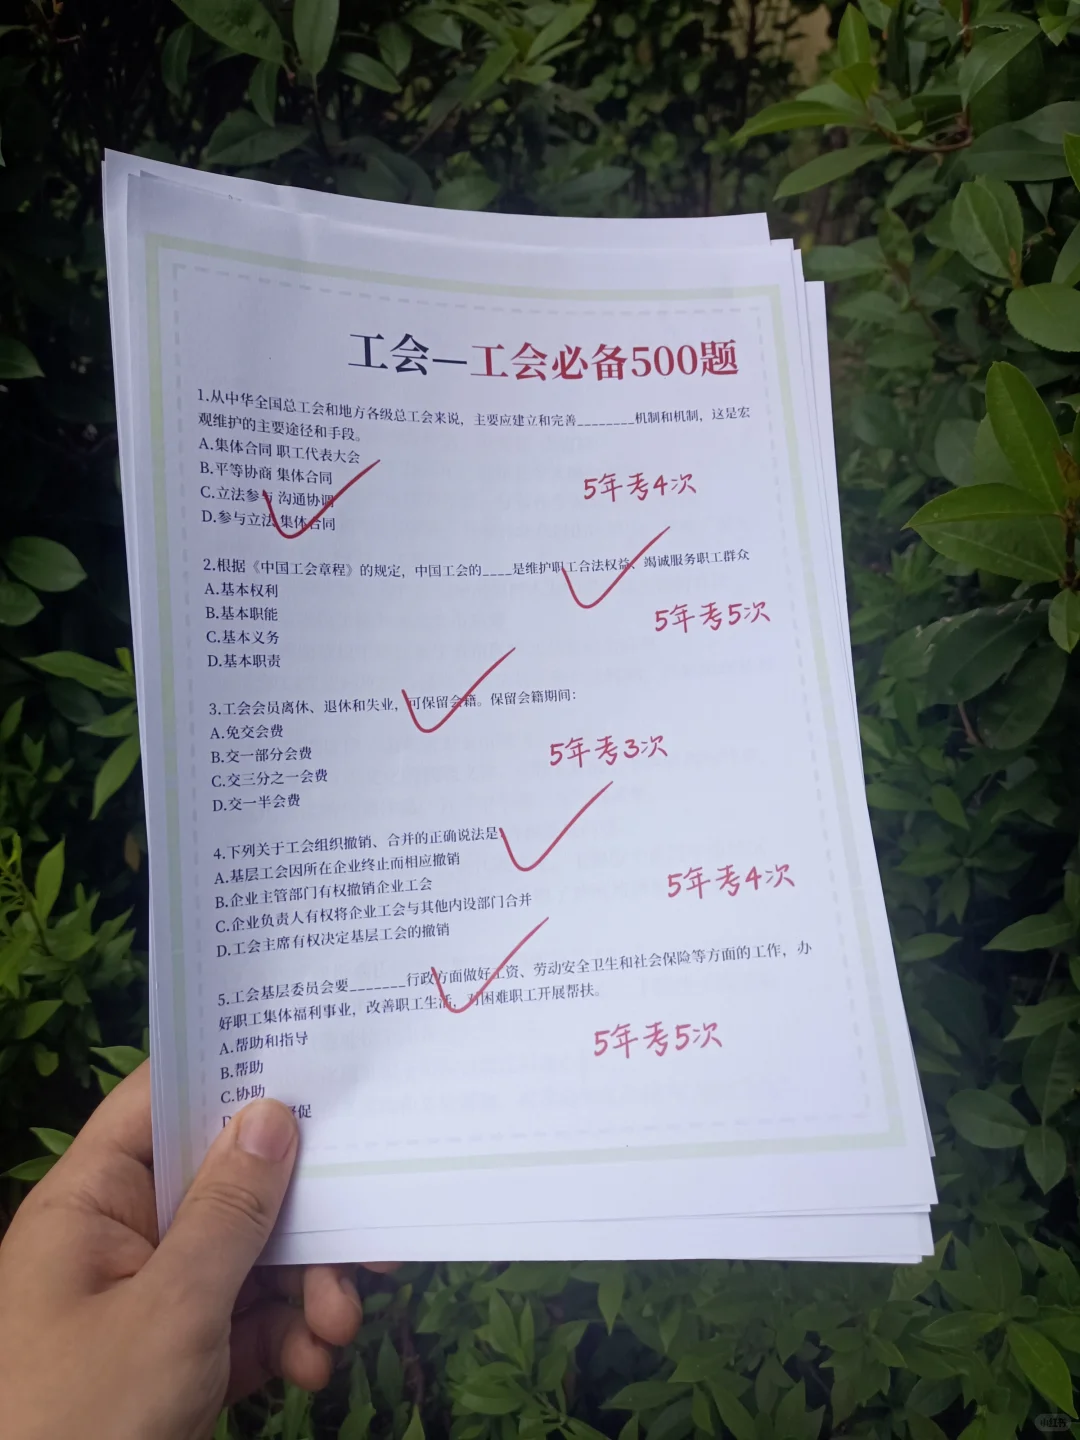 工会—工会必备500题
1.从中华全国总工会和地方各级总工会来说，主要应建立和完善________机制和机制，这是宏
观维护的主要途径和手段。
A.集体合同 职工代表大会
B.平等协商 集体合同
C.立法参与 沟通协调
D.参与立法 集体合同
5年考4次
2.根据《中国工会章程》的规定，中国工会的____是维护职工合法权益、竭诚服务职工群众
A.基本权利
B.基本职能
C.基本义务
D.基本职责
5年考5次
3.工会会员离休、退休和失业，可保留会籍。保留会籍期间：
A.免交会费
B.交一部分会费
C.交三分之一会费
D.交一半会费
5年考3次
4.下列关于工会组织撤销、合并的正确说法是
A.基层工会因所在企业终止而相应撤销
B.企业主管部门有权撤销企业工会
C.企业负责人有权将企业工会与其他内设部门合并
D.工会主席有权决定基层工会的撤销
5年考4次
5.工会基层委员会要_______行政方面做好工资、劳动安全卫生和社会保险等方面的工作，办
好职工集体福利事业，改善职工生活，对困难职工开展帮扶。
A.帮助和指导
B.帮助
C.协助
促
5年考5次
小红书